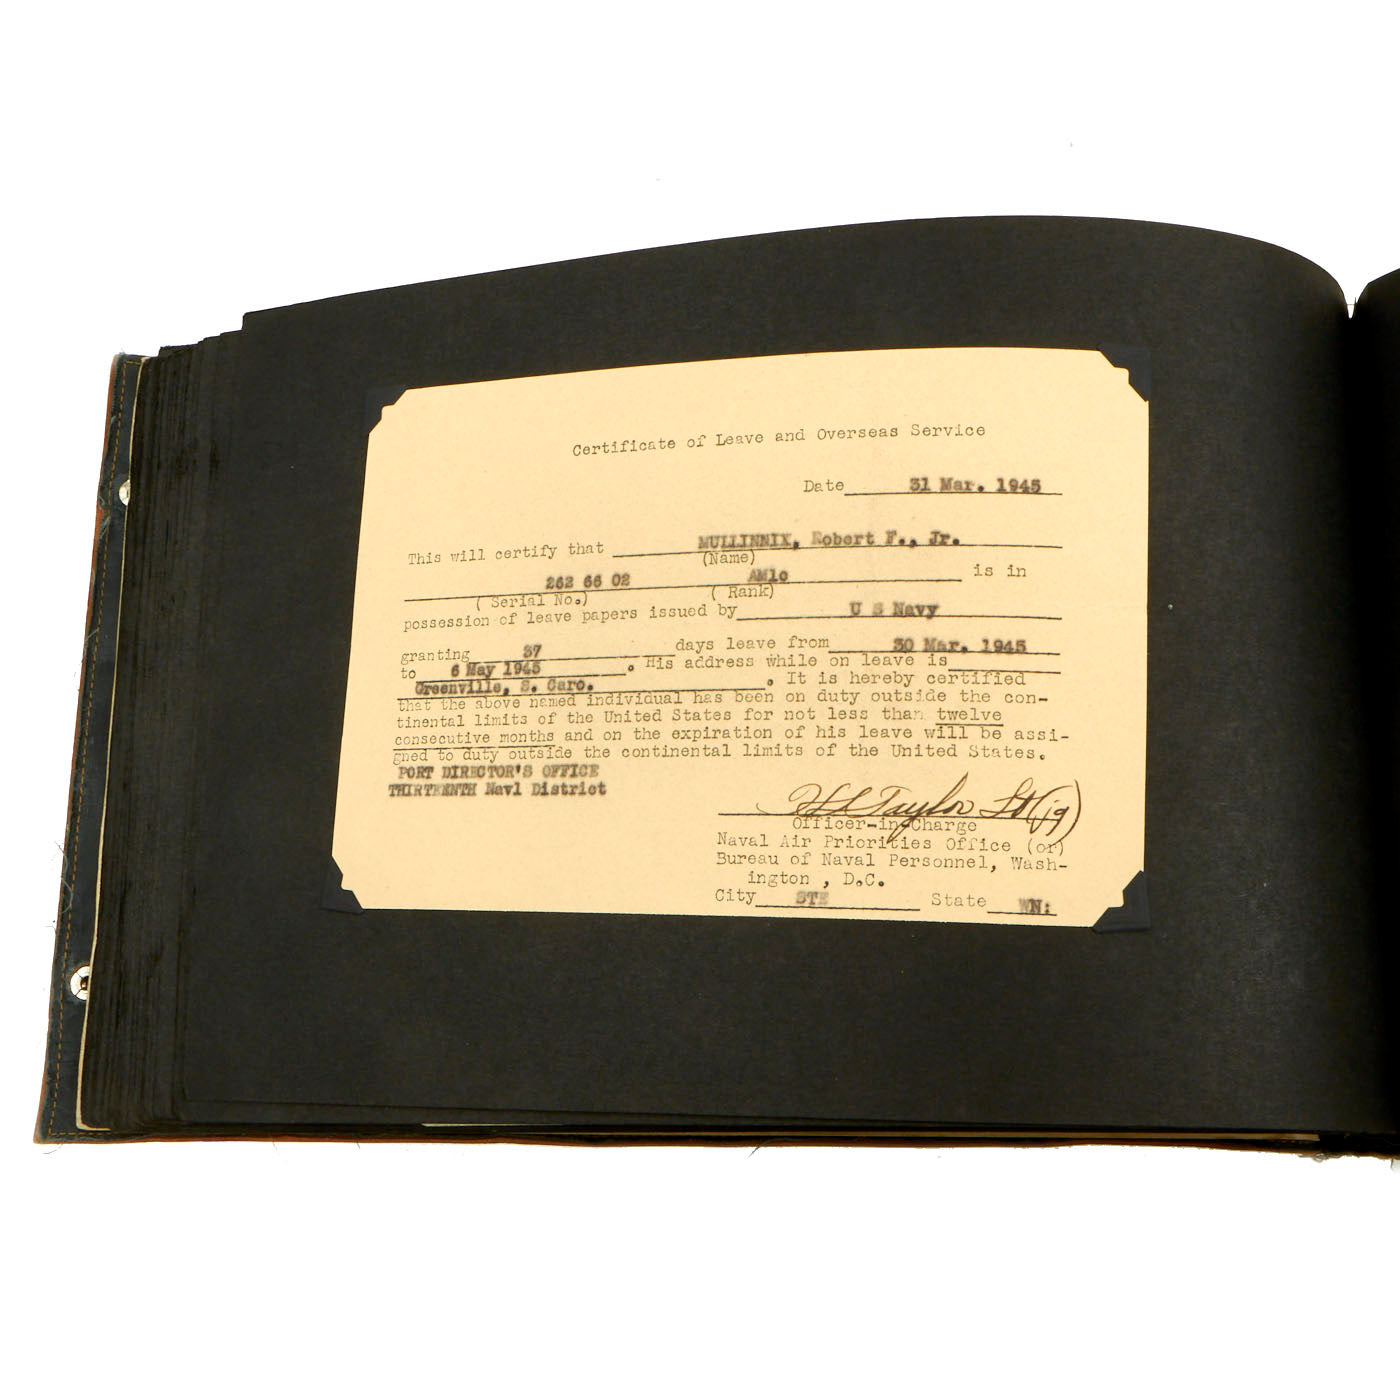 Certificate of Leave and Overseas Service
Date 31 Mar. 1945
This will certify that MULLINNIX, Robert F., Jr.
(Name)
262 66 02 AM1c is in
( Serial No.) ( Rank)
possession of leave papers issued by U S Navy
granting 37 days leave from 30 Mar. 1945
to 6 May 1945 . His address while on leave is
Greenville, S. Caro. . It is hereby certified
that the above named individual has been on duty outside the con-
tinental limits of the United States for not less than twelve
consecutive months and on the expiration of his leave will be assi-
gned to duty outside the continental limits of the United States.
PORT DIRECTOR'S OFFICE
THIRTEENTH Navl District
Taylor Lt(jg)
Officer-in-Charge
Naval Air Priorities Office (or)
Bureau of Naval Personnel, Wash-
ington , D.C.
City STE State WN: